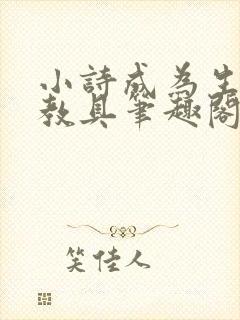 小詩成為生
教具筆趣閣
笑佳人